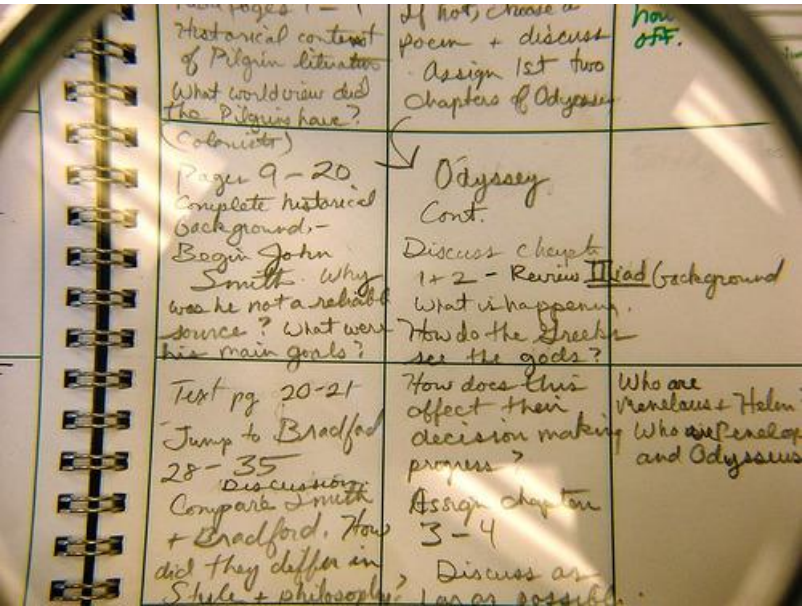 Historical context
of Pilgrim literature
What worldview did
the Pilgrims have?
(Colonists)
Pages 9 - 20
Complete historical
background,-
Begin John
Smith. Why
was he not a reliable
source? What were
his main goals?
Text pg 20-21
Jump to Bradford
28 - 35
Discussion:
Compare Smith
+ Bradford. How
did they differ in
Style + philosophy?
If not, choose a
poem + discuss
Assign 1st two
chapters of Odyssey
Odyssey
Cont.
Discuss chapts
1 + 2 - Review Iliad background
What is happening.
How do the Greeks
see the gods?
How does this
affect their
decision making
progress?
Assign chapters
3 - 4
Discuss as
far as possible.
how
off.
Who are
Menelaus + Helen
Who are Penelop
and Odysseus